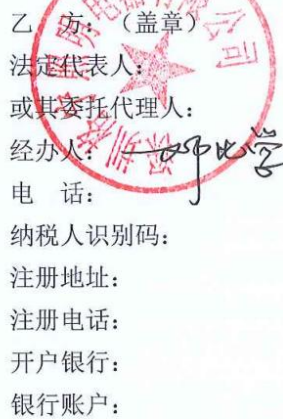 乙　方：（盖章）
法定代表人：
或其委托代理人：
经办人：
电　话：
纳税人识别码：
注册地址：
注册电话：
开户银行：
银行账户：